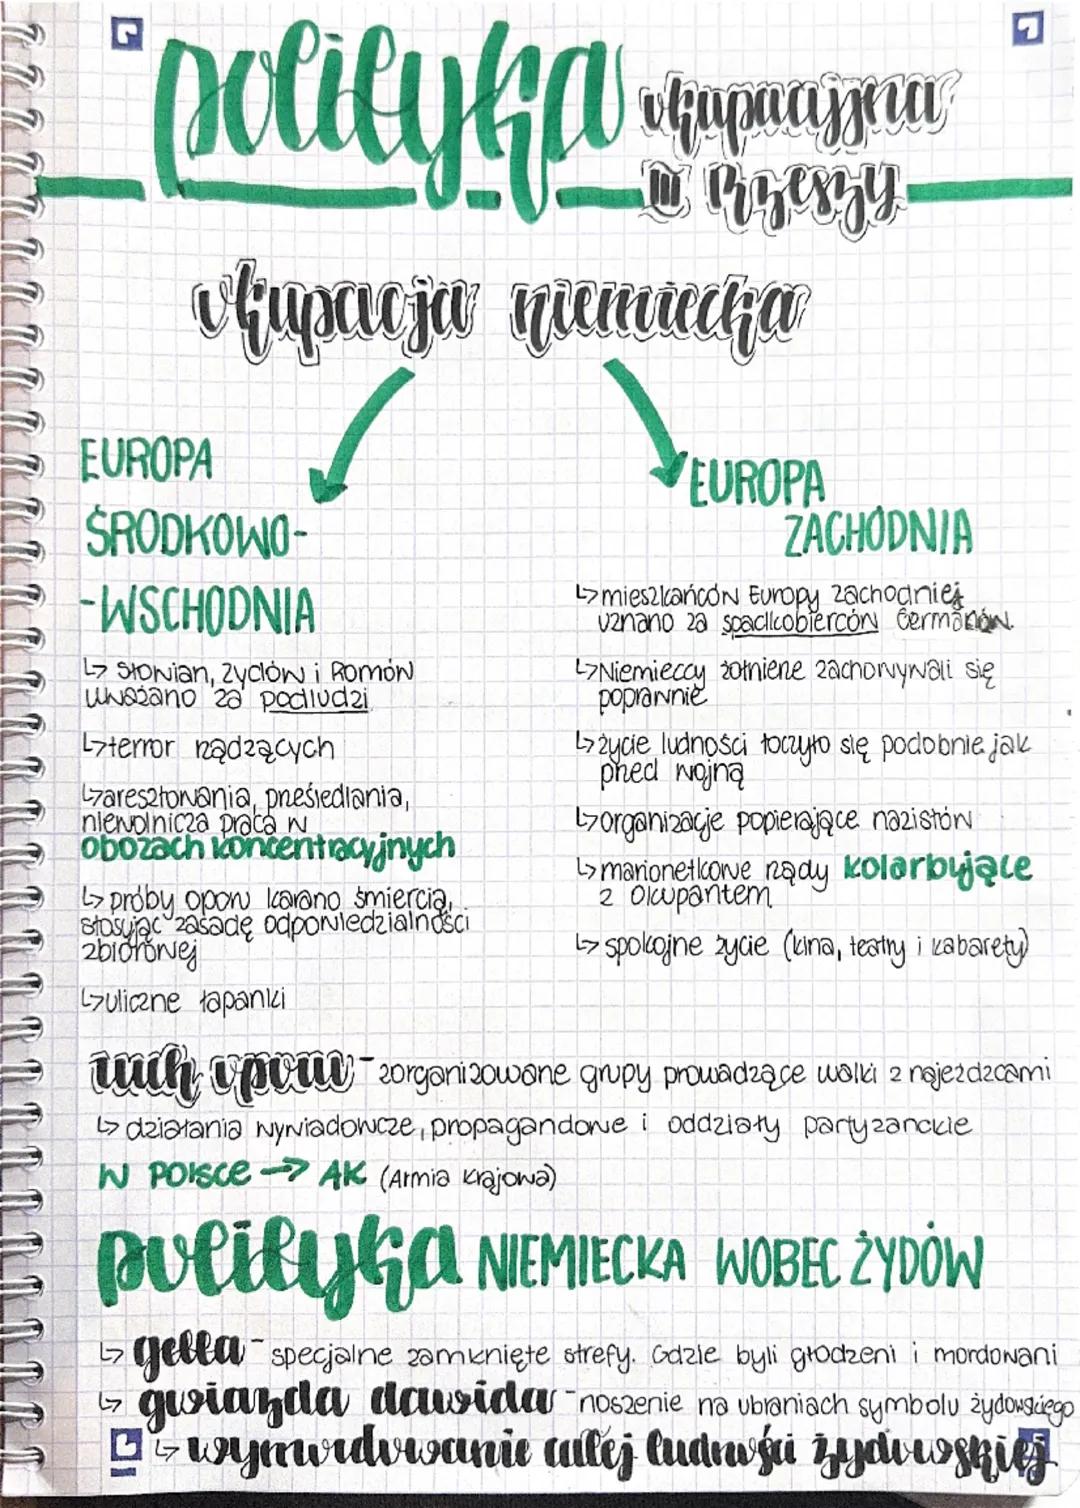 polityka okupacyjna
III Rzeszy
okupacja niemiecka
EUROPA
ŚRODKOWO-
-WSCHODNIA
↳ Słowian, Żydów i Romów
uważano za podludzi
↳ terror rządzących
↳ aresztowania, prześiedlania,
niewolnicza praca w
obozach koncentracyjnych
↳ próby oporu karano śmiercią,
stosując zasadę odpowiedzialności
zbiorowej
↳ uliczne łapanki
EUROPA
ZACHODNIA
↳ mieszkańców Europy zachodniej
uznano za spadkobierców Germanów.
↳ Niemieccy żołnierze zachowywali się
poprawnie
↳ życie ludności toczyło się podobnie jak
przed wojną
↳ organizacje popierające nazistów
↳ marionetkowe rządy kolarbujące
z okupantem
↳ spokojne życie (kina, teatry i kabarety)
ruch oporu - zorganizowane grupy prowadzące walki z najeźdzcami
↳ działania wywiadowcze, propagandowe i oddziały partyzanckie
W POLSCE → AK (Armia Krajowa)
polityka NIEMIECKA WOBEC ŻYDÓW
↳ getta - specjalne zamknięte strefy. Gdzie byli głodzeni i mordowani
↳ gwiazda dawida - noszenie na ubraniach symbolu żydowskiego
↳ wymordowanie całej ludności żydowskiej